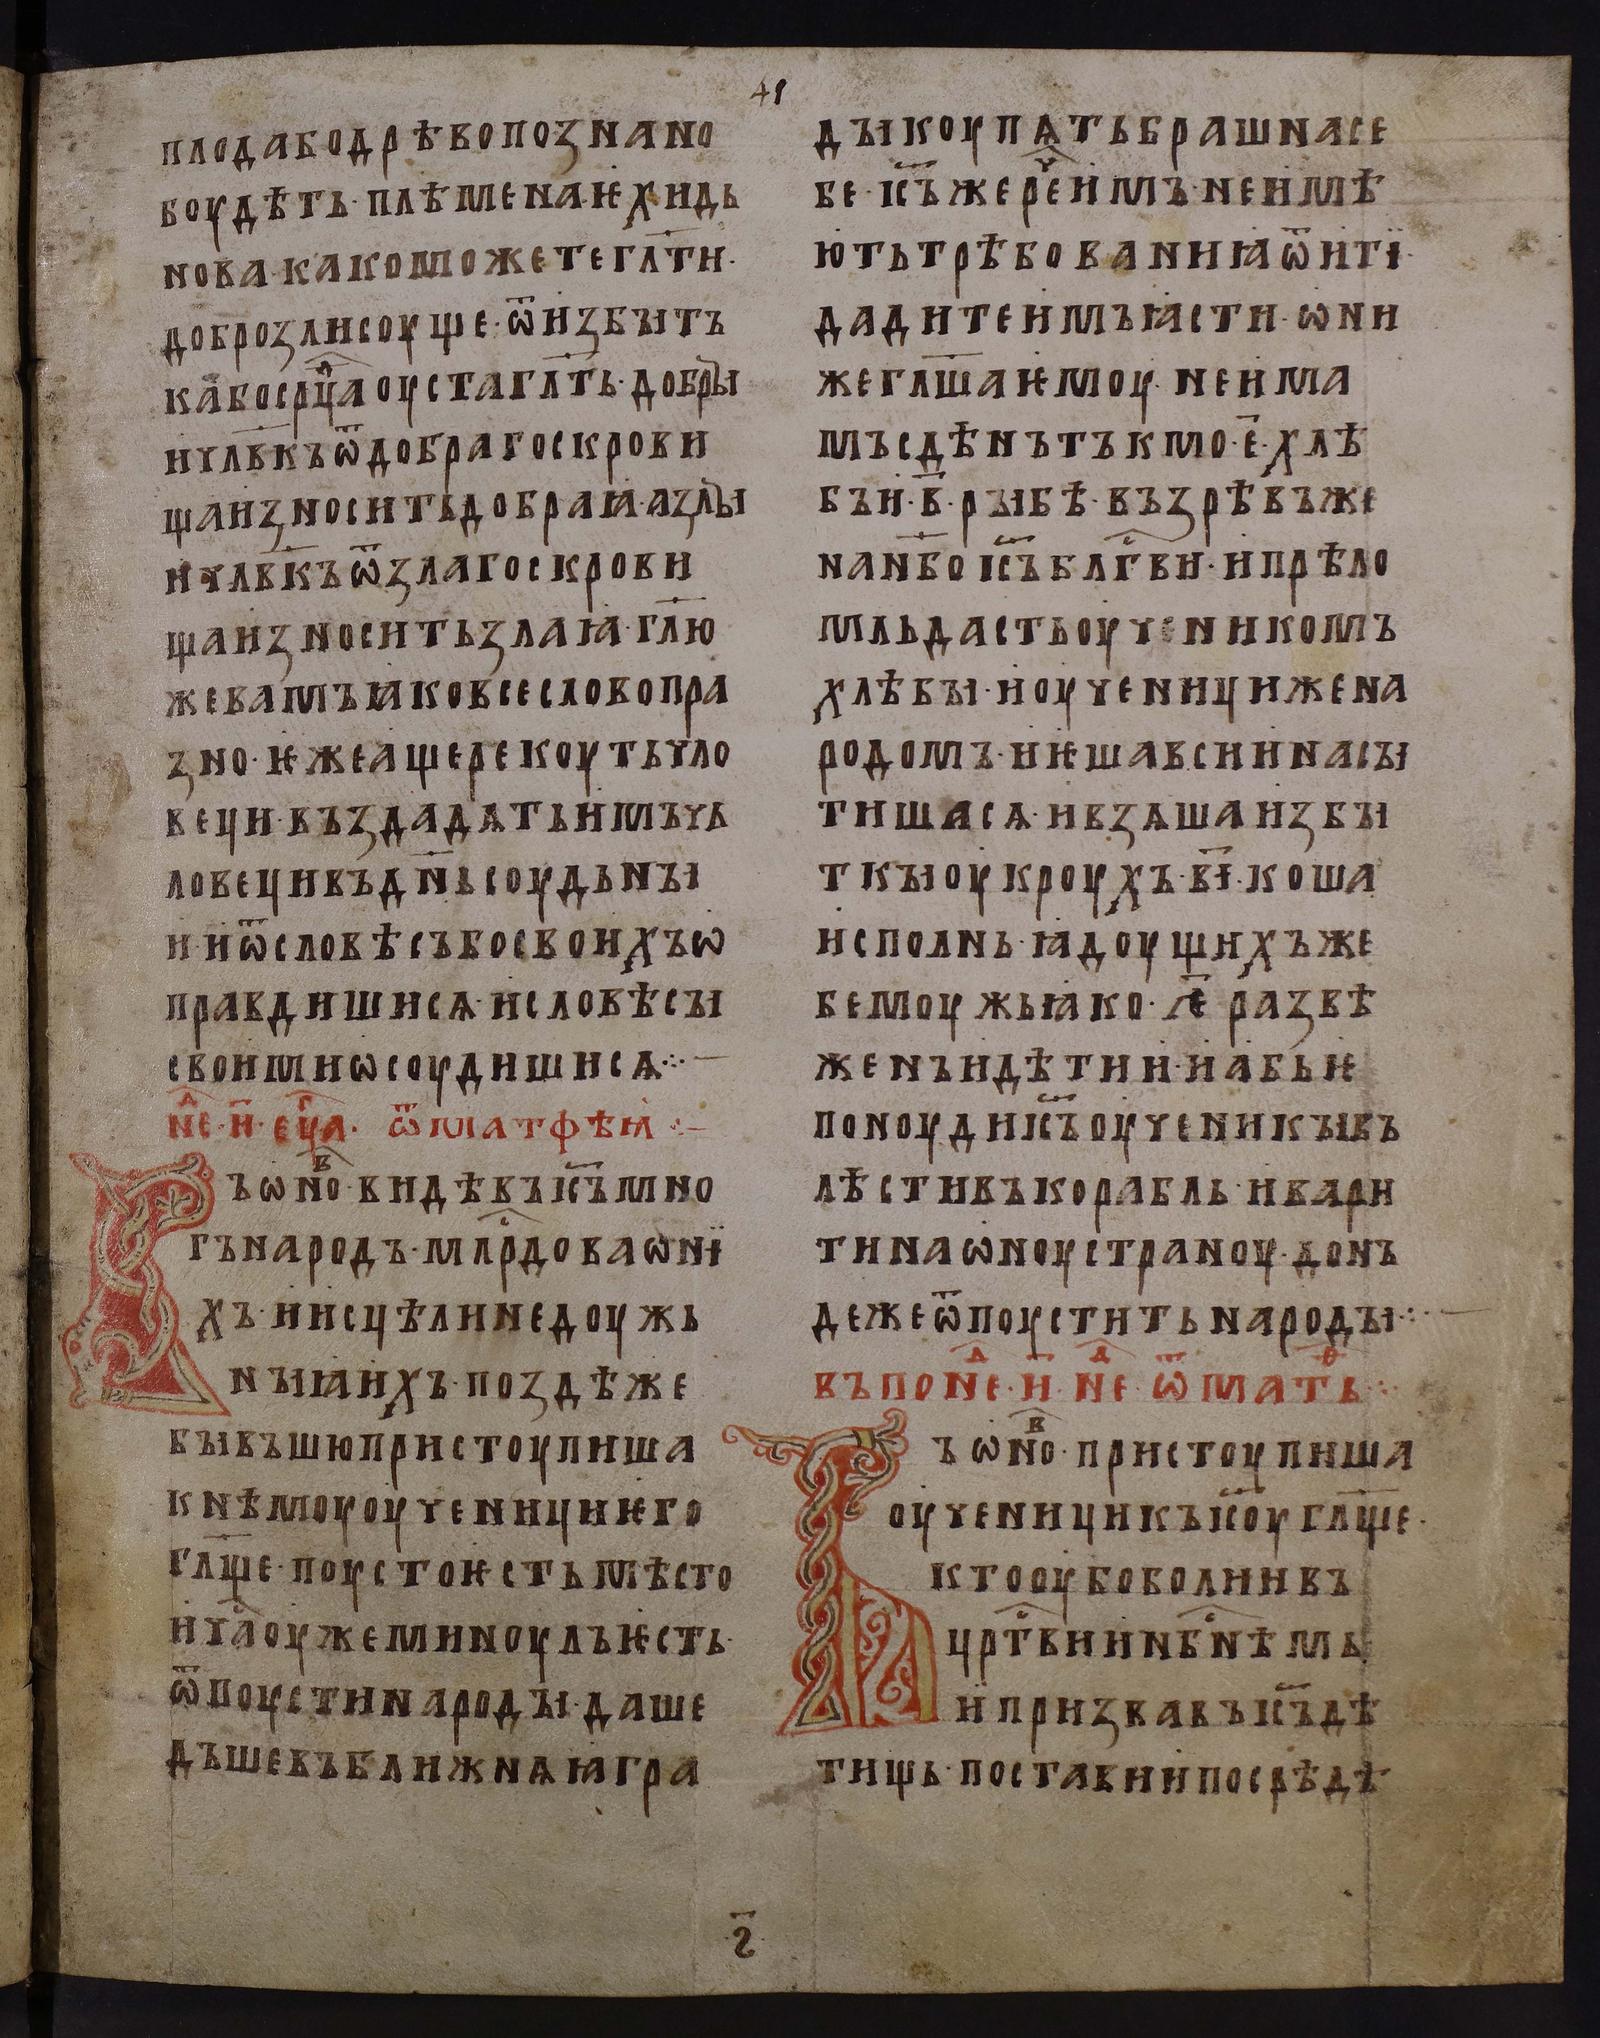 41
плода бо дрѣво познано
боудѣть· плѣмена ѥхидь
нова· како можете гл҃ти·
добро зли соуще· ѿ избытъ
ка бо срⷣца оуста гл҃ть· добры
и чл҃вкъ ѿ добраго скрови
ща износить добраꙗ· а злы
и чл҃вкъ ѿ злаго скрови
ща износить злаꙗ· гл҃ю
же вамъ ꙗко все слово пра
зно· ѥже аще рекоуть чло
веци· въздадѧть имъ чь
ловеци въ дн҃ь соудьны
и· и ѿ словѣсъ бо своихъ ѡ
правдишисѧ· и словѣсы
своими ѡсоудишисѧ·:·—
неⷣ· и҃· еⷢцⷧа· ѿ матфѣꙗ·:—
Въ ѡноⷡ· видѣвъ іс҃ъ мно
гъ народъ· млⷭрдова ѡ ні
хъ· и исцѣли недоужь
ныꙗ ихъ· поздѣ же
бывъшю пристоупиша
к нѣмоу оученици ѥго
гл҃ще· поусто ѥсть мѣсто
и чаⷭ оуже миноулъ ѥсть·
ѿпоусти народы· да ше
дъше въ ближнѧꙗ гра
ды коупѧть брашна се
бе· іс҃ъ же реⷱ имъ· не имѣ
ють трѣбованиꙗ ѿити·
дадите имъ ꙗсти· ѡни
же гл҃ша ѥмоу· не има
мъ сдѣ нъ тъкмо· е҃· хлѣ
бъ и· в҃· рыбѣ· възрѣвъ же
на нб҃о іс҃ъ блⷭгви· и прѣло
мль дасть оученикомъ
хлѣбы· и оученици же на
родомъ· и ѥша вси и насы
тишасѧ· и взѧша избы
ткы оукроухъ· ві҃· коша
исполнь· ꙗдоущихъ же
бе моужь ꙗко· ҂е҃ развѣ
женъ и дѣтии· и абьѥ
поноуди іс҃ъ оученикы въ
лѣсти въ корабль· и вари
ти на ѡноу страноу· донъ
деже ѿпоустить народы·:·—
въ поⷩне· и҃· неⷣ· ѿ матⷴь·:·
Въ ѡноⷡ· пристоупиша
оученици къ іс҃оу гл҃ще·
кто оубо болии въ
црⷭтвии нбⷭнѣмь
и призвавъ іс҃ъ дѣ
тищь· постави и посрѣдѣ
ѕ҃